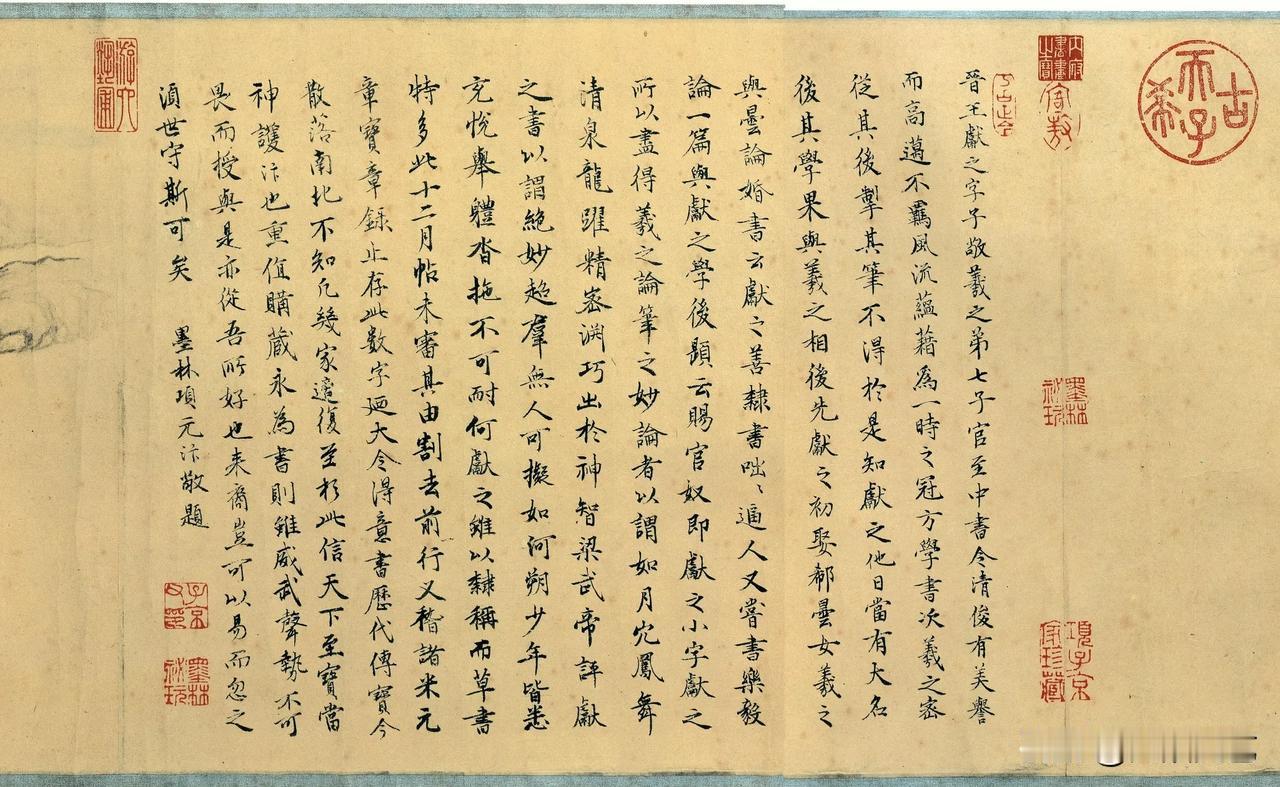 古希天子
寄敖
墨林祕玩
項子京家珍藏
晉王獻之字子敬羲之弟七子官至中書令清俊有美譽
而高邁不羈風流蘊藉為一時之冠方學書次羲之密
從其後掣其筆不得於是知獻之他日當有大名
後其學果與羲之相後先獻之初娶郗曇女羲之
與曇論婚書云獻之善隸書咄〻逼人又嘗書樂毅
論一篇與獻之學後題云賜官奴即獻之小字獻之
所以盡得羲之論筆之妙論者以謂如月穴鳳舞
清泉龍躍精密渕巧出於神智梁武帝評獻
之書以謂絕妙超羣無人可擬如何朔少年皆悉
充悅舉體沓拖不可耐何獻之雖以隸稱而草書
特多此十二月帖未審其由割去前行又稽諸米元
章寶章錄止存此数字廼大令得意書歷代傳寶今
散落南北不知凡幾家適復至於此信天下至寶當
神護汴也重值購藏永為書則雖威武聲勢不可
畏而授與是亦從吾所好也来裔豈可以易而忽之
湏世守斯可矣 墨林項元汴敬題
子京父印
墨林祕玩